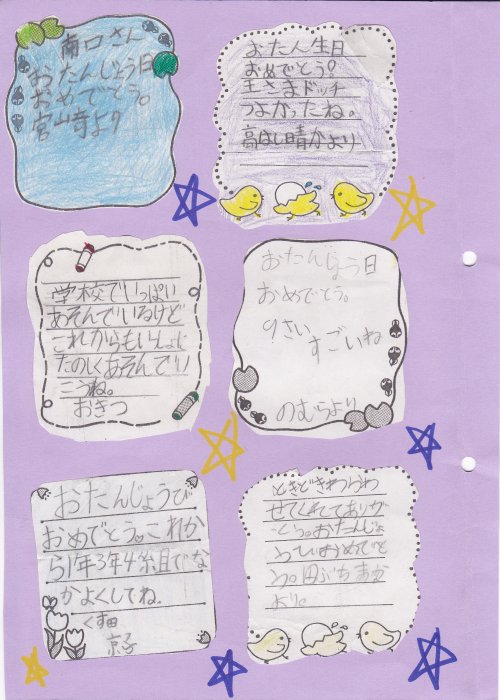 南口さん
おたんじょう日
おめでとう。
宮山寺より
おたん生日
おめでとう!
王さまドッチ
つよかったね。
高はし晴かより
学校でいっぱい
あそんでいるけど
これからもいっしょに
たのしくあそんでい
こうね。
おきつ
おたんじょう日
おめでとう。
9さい
すごいね
のむらより
おたんじょうび
おめでとう。これか
ら1年3年4年組目でな
かよくしてね。
くす田
京子
ときどきわらわ
せてくれてありが
とう。おたんじょ
うびおめでと
う。田ぶち
より。